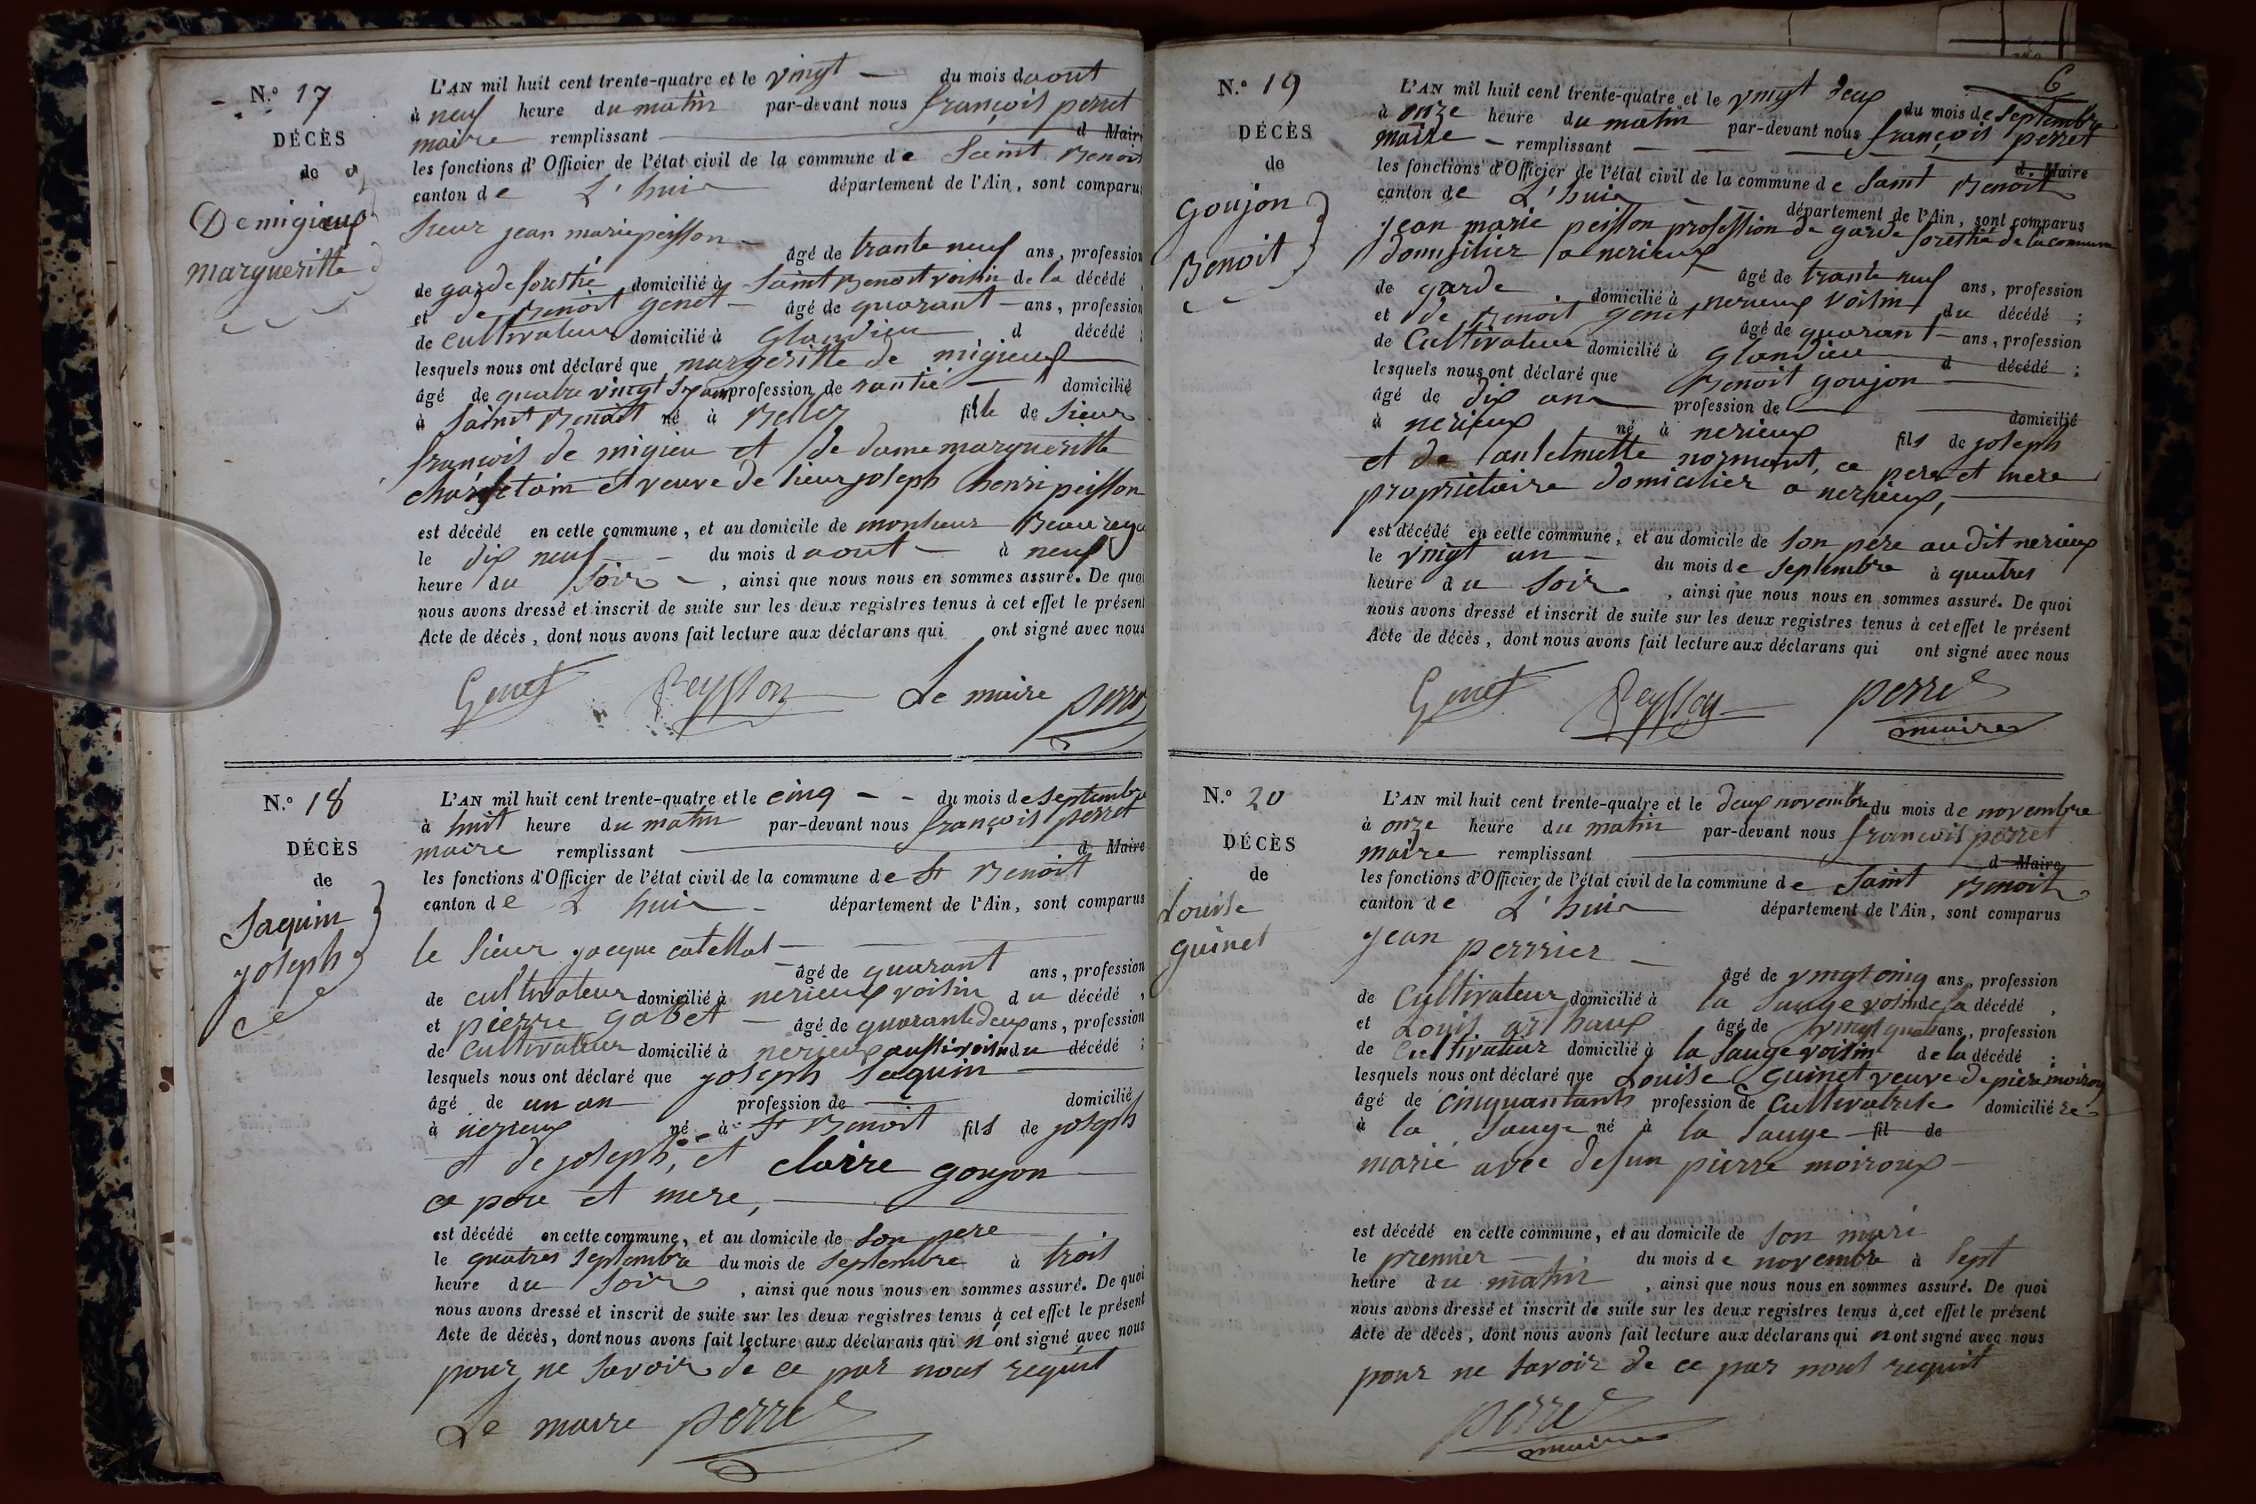 N.° 17
DÉCÈS
de
Demigieux
margueritte
L'AN mil huit cent trente-quatre et le vingt — du mois d aout
à neuf heure du matin par-devant nous françois perret
maire remplissant d Maire
les fonctions d'Officier de l'état civil de la commune de Saint Benoit
canton de L'huis département de l'Ain, sont comparus
Sieur jean marie peisson
âgé de trante neuf ans, profession
de garde forestié domicilié à Saint Benoit voisin de la décédé
et de Benoit genet — âgé de quarant — ans, profession
de Cultivateur domicilié à Glandieu d décédé ;
lesquels nous ont déclaré que margeritte de migieux
âgé de quatre vingt profession de rantié — domicilié
à Saint Benoit né à Belley fille de Sieur
françois de migieu et de dame margueritte
et veuve de Sieur joseph henri peisson
est décédé en cette commune, et au domicile de monsieur
le dix neuf — du mois d aout — à neuf
heure du Soir — , ainsi que nous nous en sommes assuré. De quoi
nous avons dressé et inscrit de suite sur les deux registres tenus à cet effet le présent
Acte de décès, dont nous avons fait lecture aux déclarans qui ont signé avec nous
Genet Peysson Le maire perret
N.° 18
DÉCÈS
de
Jaquin
joseph
L'AN mil huit cent trente-quatre et le cinq — — du mois de Septembre
à huit heure du matin par-devant nous françois perret
maire remplissant d Maire
les fonctions d'Officier de l'état civil de la commune de St Benoit
canton de L'huis — département de l'Ain, sont comparus
le Sieur jacque catellat —
âgé de quarant ans, profession
de cultivateur domicilié à nerieux voisin du décédé ,
et pierre gobet — âgé de quarante deux ans, profession
de Cultivateur domicilié à nerieux aussi voisin du décédé ;
lesquels nous ont déclaré que joseph Jaquin
âgé de un an profession de domicilié
à nerieux né à St Benoit fils de joseph
et de joseph, et claire goujon
ce pere et mere,
est décédé en cette commune, et au domicile de Son pere
le quatres Septembre du mois de Septembre à trois
heure du Soir , ainsi que nous nous en sommes assuré. De quoi
nous avons dressé et inscrit de suite sur les deux registres tenus à cet effet le présent
Acte de décès, dont nous avons fait lecture aux déclarans qui n'ont signé avec nous
pour ne Savoir de ce par nous requit
Le maire perret
6
N.° 19
DÉCÈS
de
Goujon
Benoit
L'AN mil huit cent trente-quatre et le vingt deux du mois de Septembre
à onze heure du matin par-devant nous françois perret
maire — remplissant — d. Maire
les fonctions d'Officier de l'état civil de la commune de Saint Benoit
canton de L'huis département de l'Ain, sont comparus
jean marie peisson profession de garde forestié de la commune
domisilier a nerieux âgé de trante neuf ans, profession
de garde domicilié à nerieux voisin du décédé ;
et de Benoit genet âgé de quarant — ans, profession
de Cultivateur domicilié à Glandieu d décédé ;
lesquels nous ont déclaré que Benoit goujon
âgé de dix ans profession de domicilié
à nerieux né à nerieux fils de joseph
et de antelmette normant, ce pere et mere
propriétaire domicilier a nerieux,
est décédé en cette commune, et au domicile de Son pere au dit nerieux
le vingt un — du mois de Septembre à quatres
heure du Soir , ainsi que nous nous en sommes assuré. De quoi
nous avons dressé et inscrit de suite sur les deux registres tenus à cet effet le présent
Acte de décès, dont nous avons fait lecture aux déclarans qui ont signé avec nous
Genet Peysson perret
maire
N.° 20
DÉCÈS
de
Louise
guinet
L'AN mil huit cent trente-quatre et le deux novembre du mois de novembre
à onze heure du matin par-devant nous françois perret
maire remplissant d Maire
les fonctions d'Officier de l'état civil de la commune de Saint Benoit
canton de L'huis département de l'Ain, sont comparus
jean perrier —
âgé de vingt cinq ans, profession
de Cultivateur domicilié à la Sauge voisin de la décédé ,
et Louis arthaux âgé de ans, profession
de Cultivateur domicilié à la Sauge voisin de la décédé ;
lesquels nous ont déclaré que Louise Guinet veuve de piere moiroux
âgé de cinquant ants profession de Cultivatrise domicilié
à la Sauge né à la Sauge fil de
marié avec defun pierre moiroux —
est décédé en cette commune, et au domicile de Son mari
le premier — du mois de novembre à Sept
heure du matin , ainsi que nous nous en sommes assuré. De quoi
nous avons dressé et inscrit de suite sur les deux registres tenus à cet effet le présent
Acte de décès, dont nous avons fait lecture aux déclarans qui n ont signé avec nous
pour ne Savoir de ce par nous requit
perret
maire